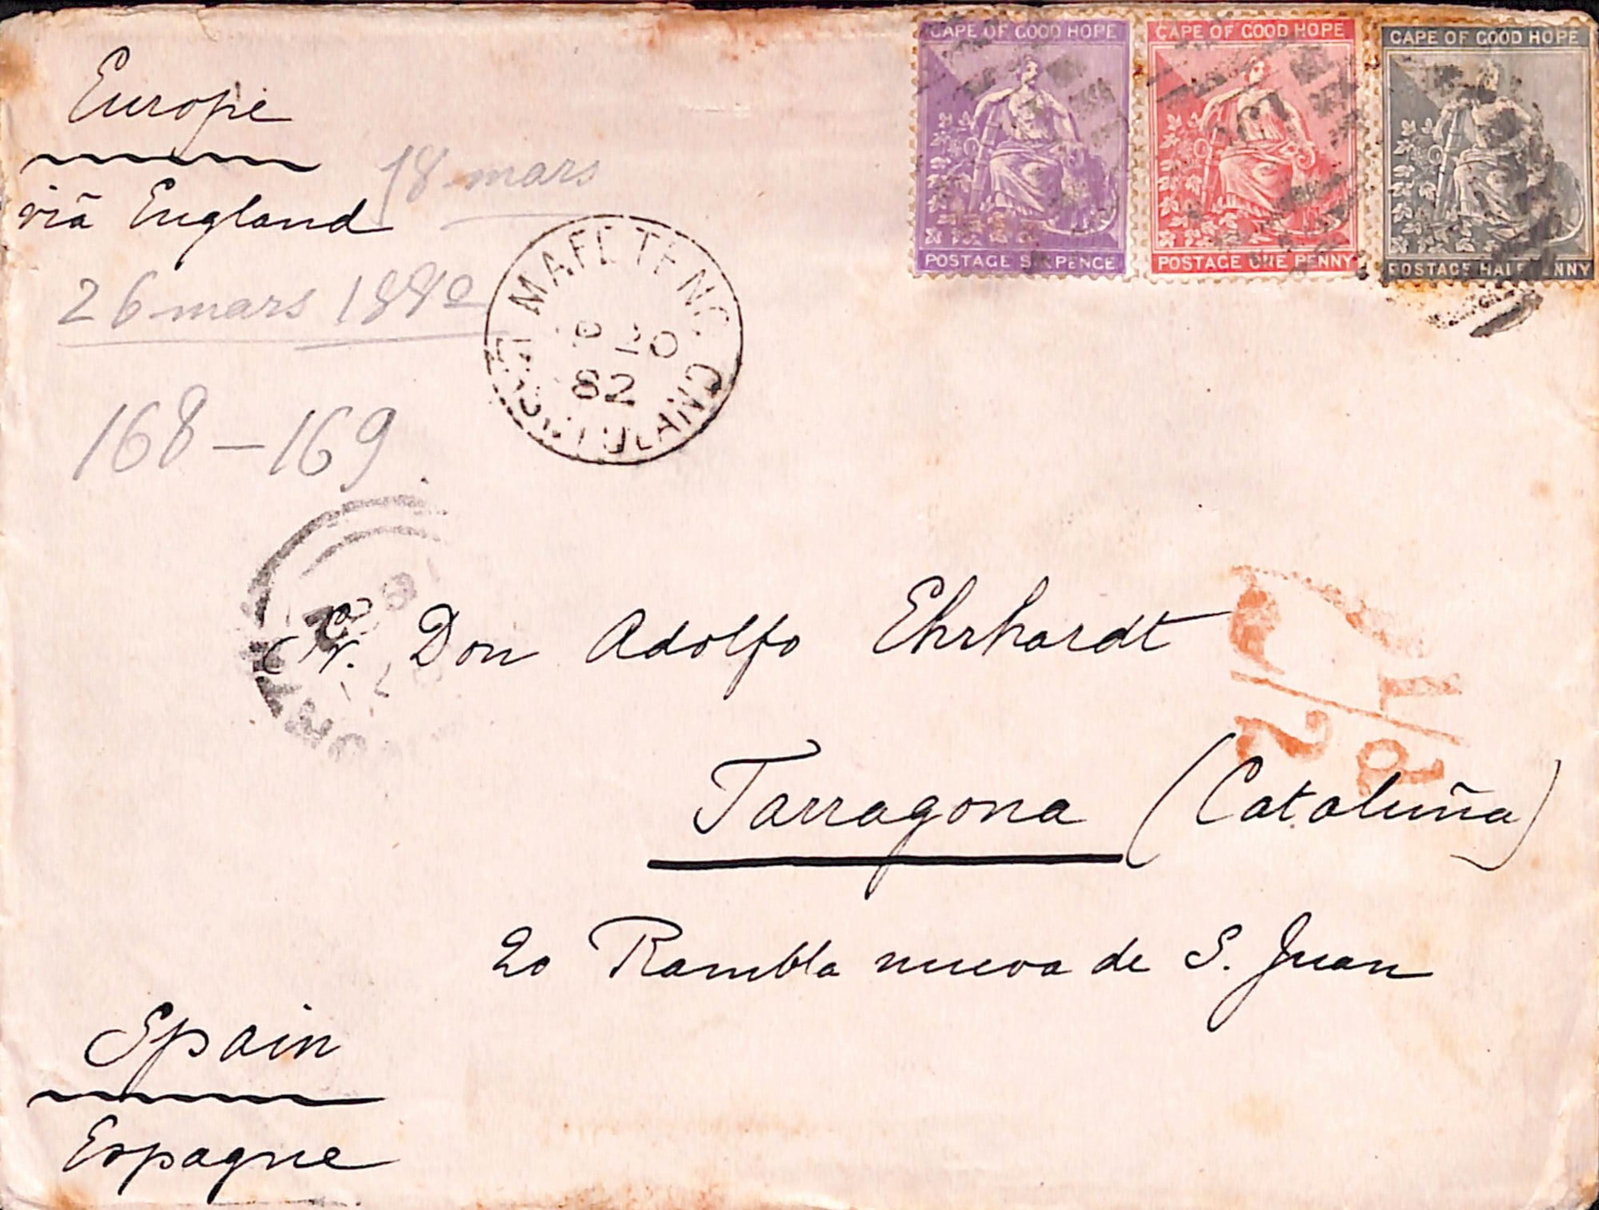 Europe
via England
18 mars
26 mars 1882
168-169
CAPE OF GOOD HOPE
POSTAGE SIXPENCE
CAPE OF GOOD HOPE
POSTAGE ONE PENNY
CAPE OF GOOD HOPE
POSTAGE HALFPENNY
MAFETENG
20
82
BASUTOLAND
Sr. Don Adolfo Ehrhardt
Tarragona (Cataluña)
20 Rambla nueva de S. Juan
Spain
Espagne
1/2